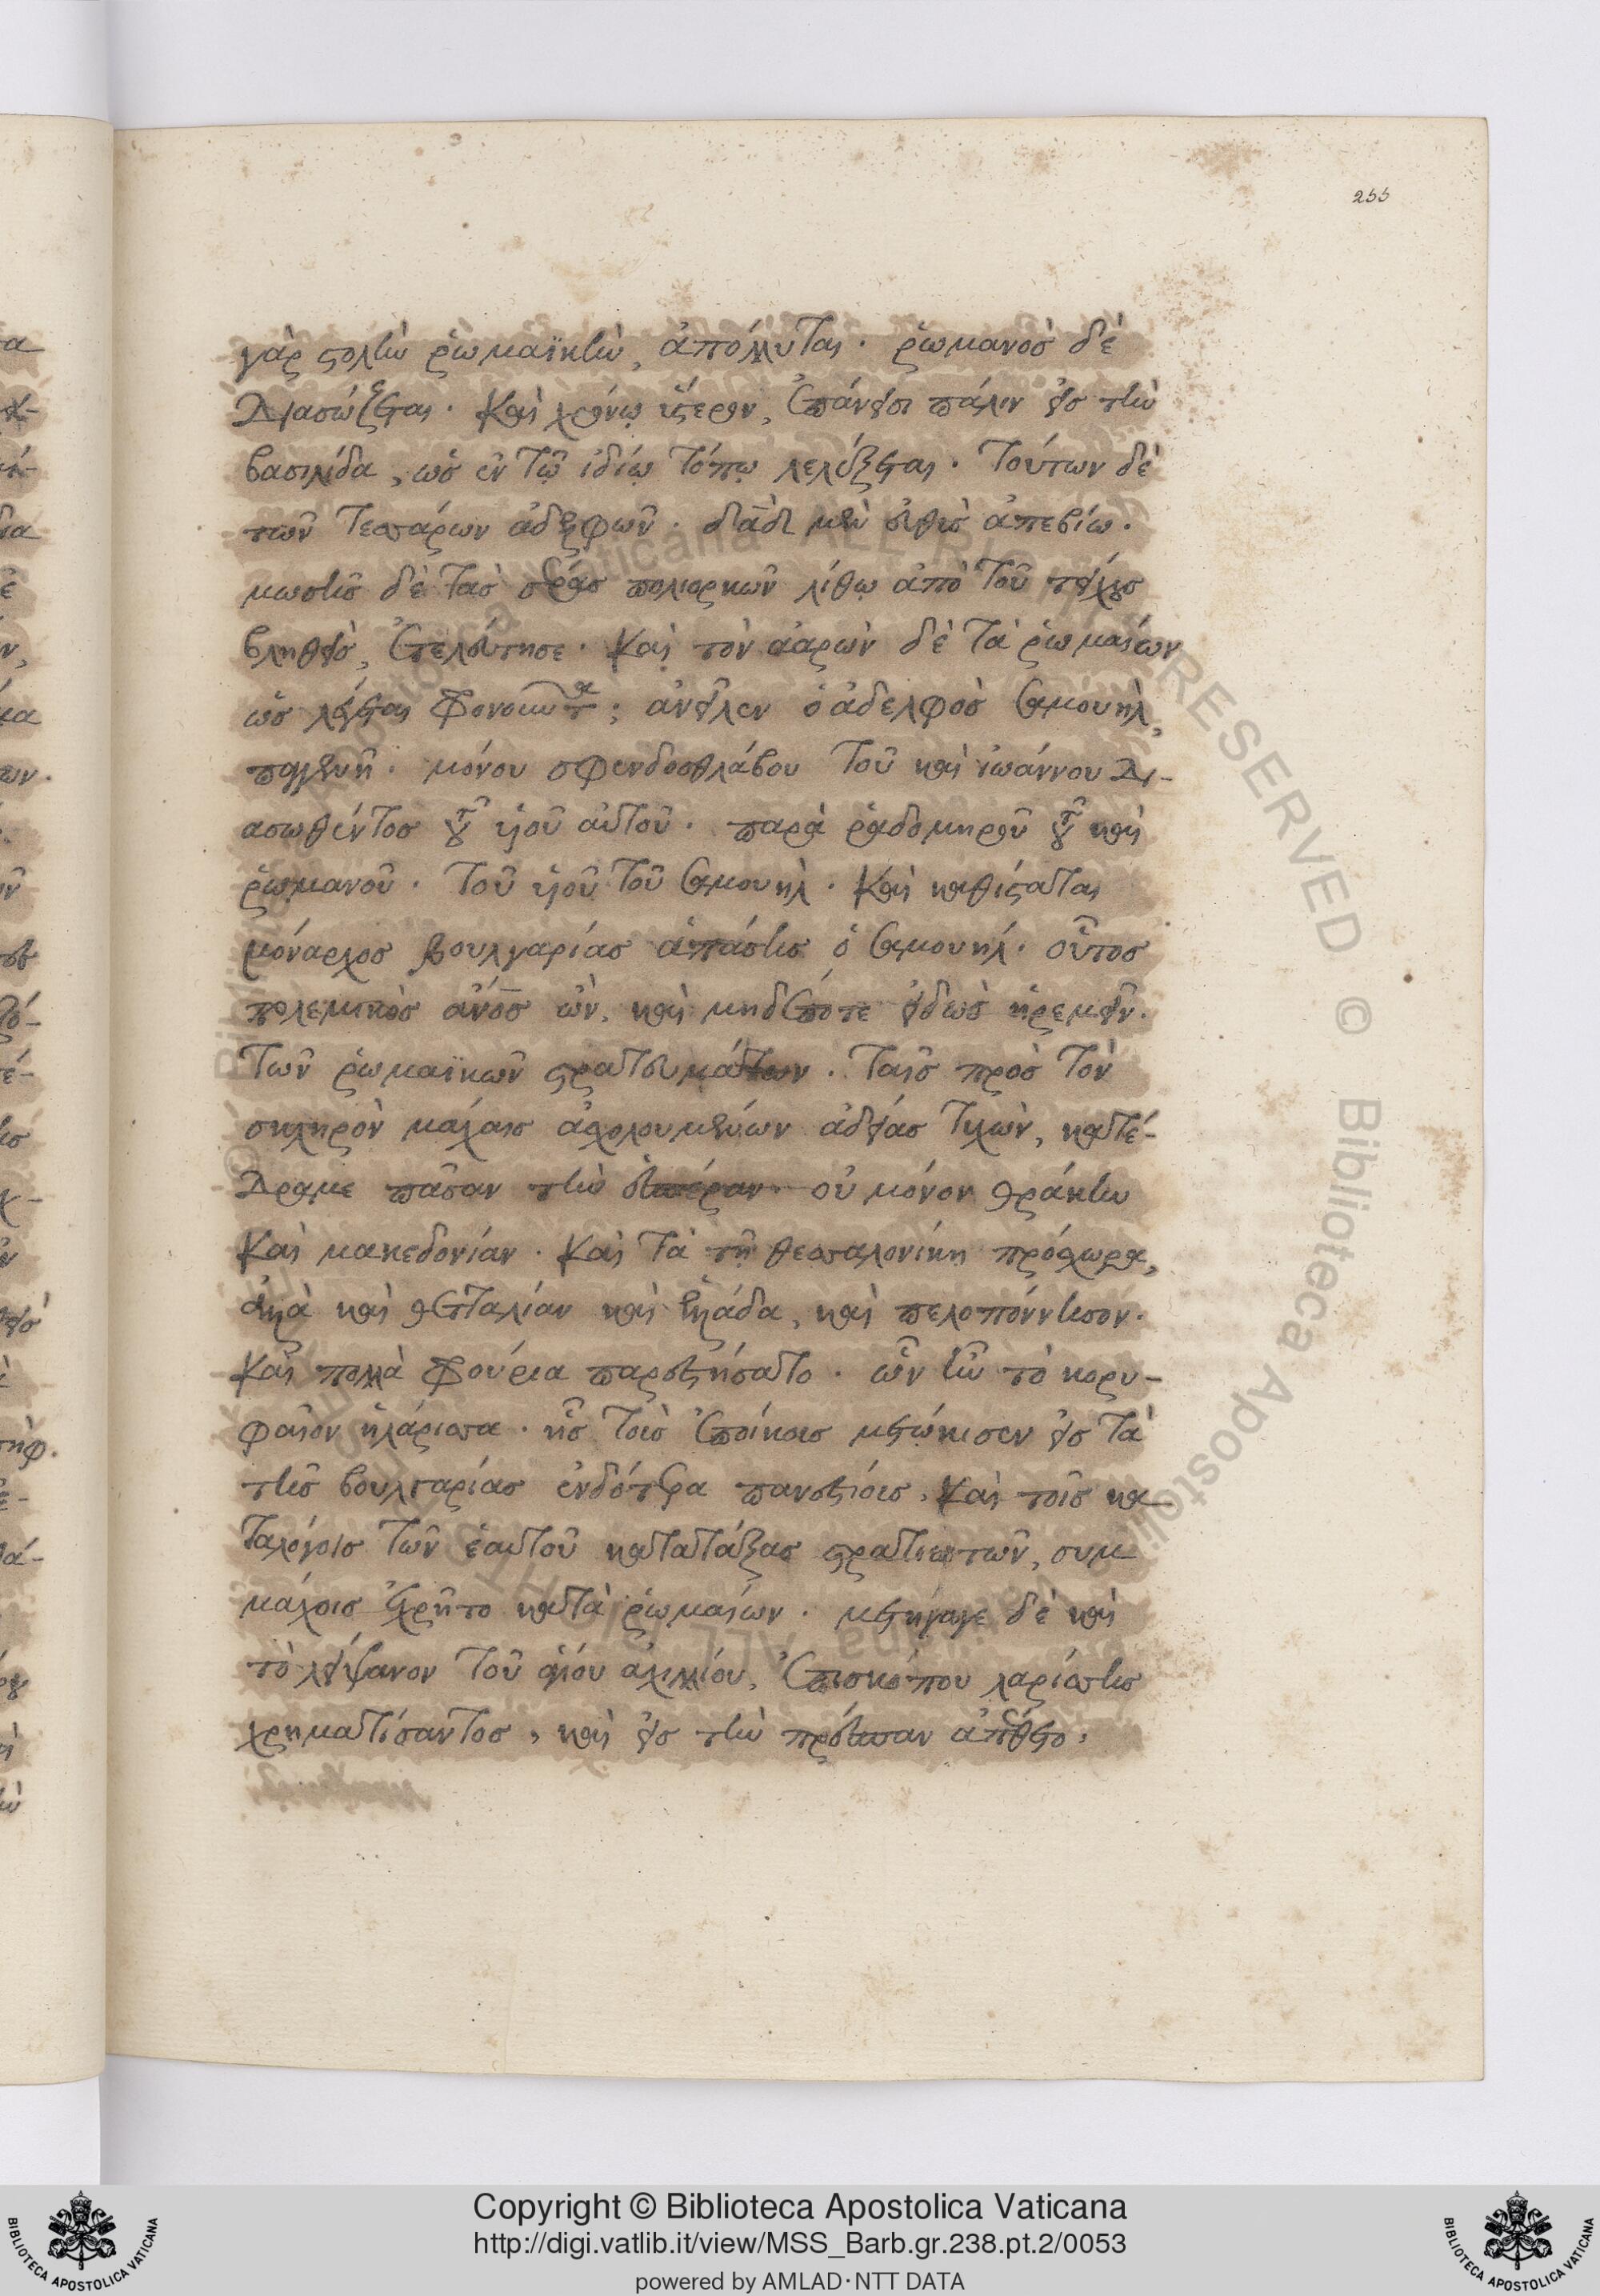 255
γὰρ στολὴν ῥωμαϊκὴν, ἀπόλλυται· ῥωμανὸσ δὲ
Διασώζεται· Καὶ χρόνω ὕστερον, ἐπάνεισι πάλιν εἰσ τὴν
βασιλίδα, ὡσ ἐν τῶ ἰδίω τόπω λελέξεται· Τούτων δὲ
τῶν τεσσάρων ἀδελφῶν· δαδὶδ μὲν εὐθὺσ ἀπεβίω·
μωσῆσ δὲ τὰσ σέρασ πολιορκῶν λίθω ἀπὸ τοῦ τείχουσ
βληθεὶσ, ἐτελεύτησε· Καὶ τὸν ἀαρὼν δὲ τὰ ῥωμαίων
ὡσ λέγεται φρονοῦντα; ἀνεῖλεν ὁ ἀδελφὸσ σαμουὴλ,
παγγενῆ· μόνου σφενδοσθλάβου τοῦ καὶ ἰωάννου Δι-
ασωθέντοσ τοῦ υἱοῦ αὐτοῦ· παρὰ ῥαδομηροῦ τοῦ καὶ
ῥωμανοῦ· Τοῦ υἱοῦ τοῦ σαμουὴλ· Καὶ καθίσταται
μόναρχοσ βουλγαρίασ ἁπάσησ ὁ σαμουήλ· οὗτοσ
πολεμικὸσ ἄνοσ ὢν, καὶ μηδέποτε εἰδὼσ ἠρεμεῖν·
Τῶν ῥωμαϊκῶν στρατευμάτων· Ταῖσ πρὸσ τὸν
σκληρὸν μάχαισ ἀσχολουμένων ἀδείασ τυχὼν, κατέ-
Δραμε πᾶσαν τὴν ἑσπέραν· οὐ μόνον θράκην
Καὶ μακεδονίαν· Καὶ τὰ τῆ θεσσαλονίκη πρόσχωρα,
ἀλλὰ καὶ θετταλίαν καὶ ἑλλάδα, καὶ πελοπόννησον·
Καὶ πολλὰ φρούρια παρεστήσατο· ὧν ἦν τὸ κορυ-
φαῖον ἡ λάρισσα· ἧσ τοὺσ ἐποίκουσ μετώκισεν εἰσ τὰ
τῆσ βουλγαρίασ ἐνδότερα πανεστίουσ, Καὶ τοῖσ κα
Ταλόγοισ τῶν ἑαυτοῦ κατατάξασ στρατιωτῶν, συμ
μάχοισ ἐχρῆτο κατὰ ῥωμαίων· μετήγαγε δὲ καὶ
τὸ λείψανον τοῦ ἁγίου ἀχιλλίου, ἐπισκόπου λαρίσσησ
χρηματίσαντοσ, καὶ εἰσ τὴν πρέσπαν ἀπέθετο,
Copyright © Biblioteca Apostolica Vaticana
http://digi.vatlib.it/view/MSS_Barb.gr.238.pt.2/0053
powered by AMLAD·NTT DATA